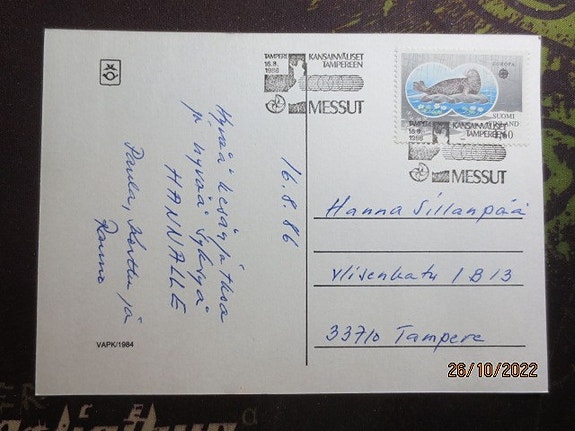 TAMPERE
16.8.
1986
KANSAINVÄLISET
TAMPEREEN
MESSUT
EUROPA
SUOMI
FINLAND
1,60
TAMPERE
16.8.
1986
KANSAINVÄLISET
TAMPEREEN
MESSUT
16.8.86
Hyvää kesänjatkoa
ja hyvää syksyä
HANNALLE
Paula, Kerttu ja
Raimo
Hanna Sillanpää
Ylisenkatu 1 B 13
33710 Tampere
VAPK/1984
26/10/2022